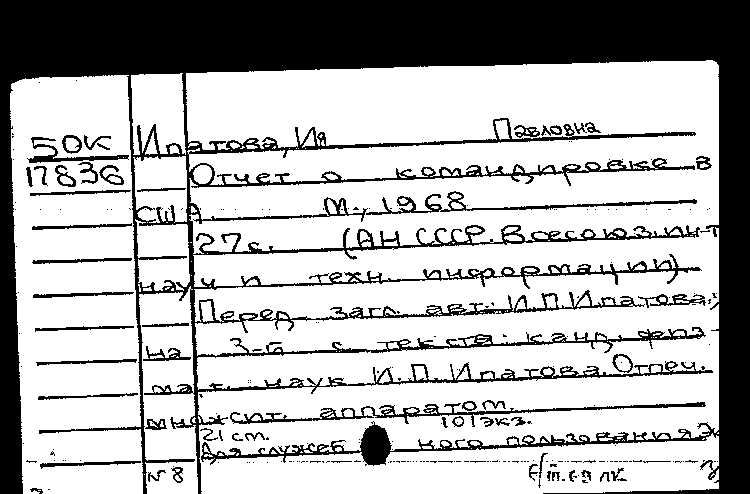 50К Ипатова, Ия Павловна
17836 Отчет о командировке в
США. М., 1968
27с. (АН СССР. Всесоюз. ин-т
науч и техн. информации)
Перед загл. авт.: И.П.Ипатова;
на 3-й с текста: канд. физ-
мат. наук И.П.Ипатова. Отпеч.
множит. аппаратом.
21 см. 101экз.
Для служеб ного пользования. Эк
№8